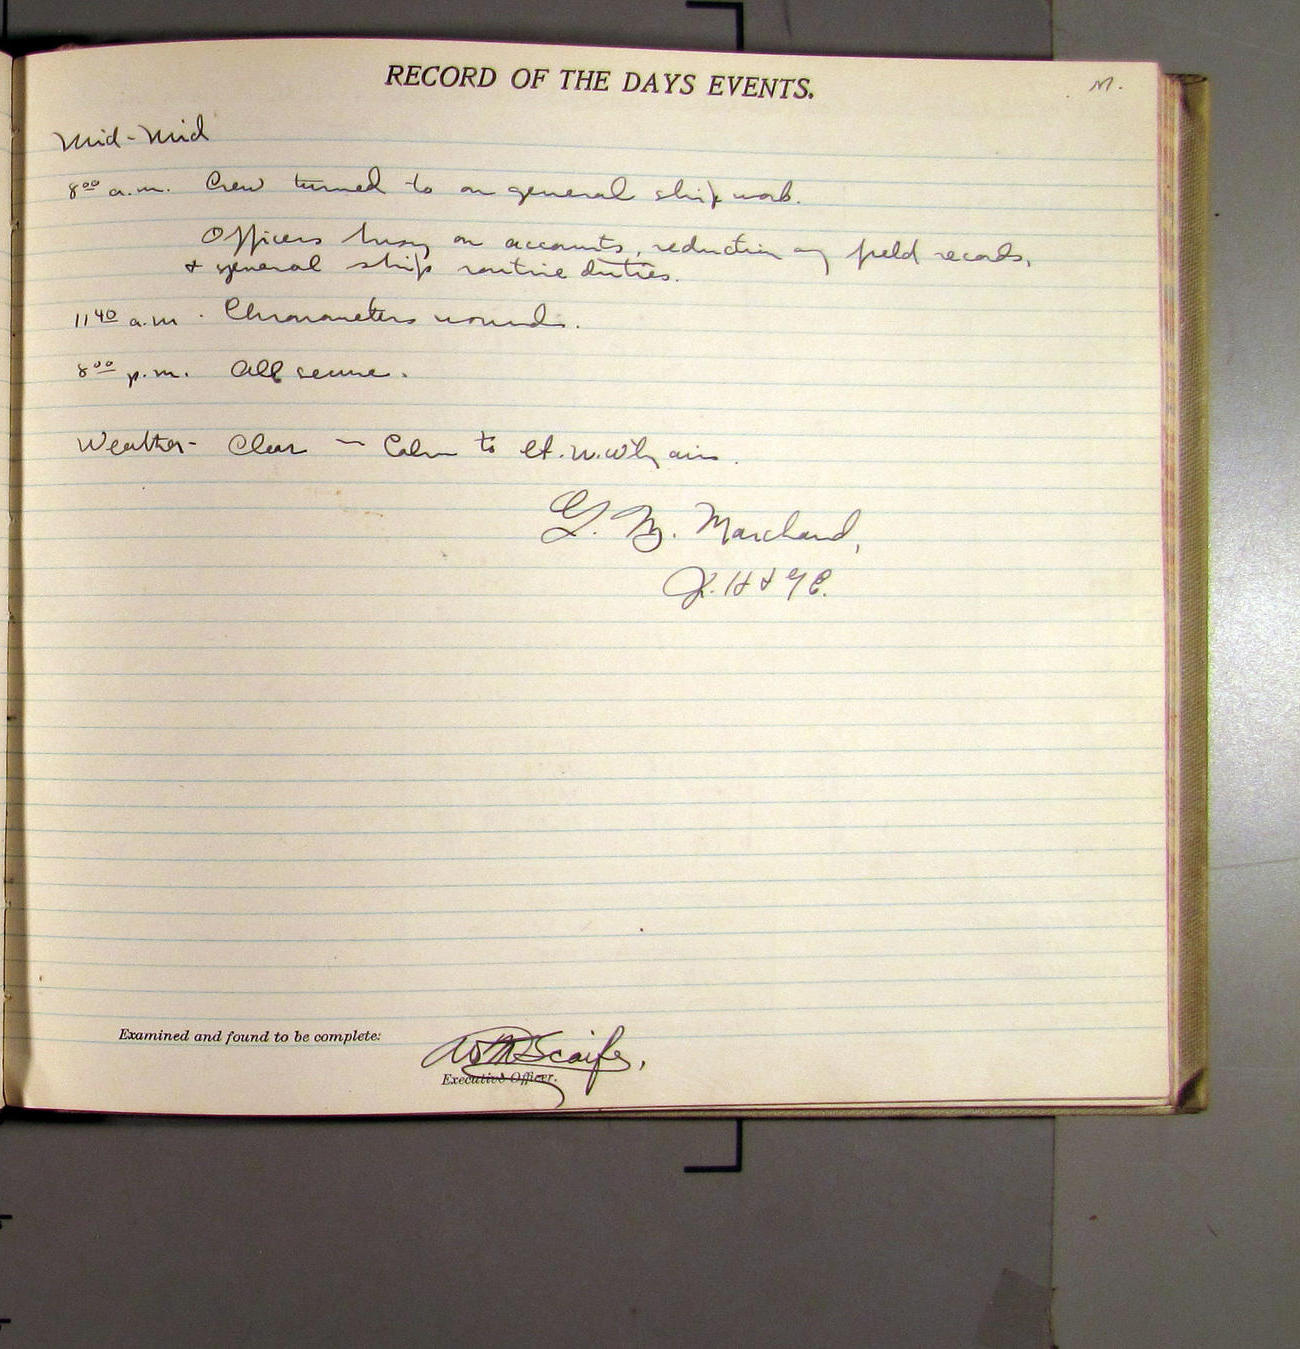 RECORD OF THE DAYS EVENTS.
M.
Mid-Mid
8⁰⁰ a.m. Crew turned to on general ship work.
Officers busy on accounts, reduction of field records,
& general ship routine duties.
11⁴⁰ a.m. Chronometers wound.
8⁰⁰ p.m. All secure.
Weather- Clear - Calm to lt. N.W'ly airs.
G. M. Marchand,
J. H & G E.
Examined and found to be complete:
W M Scaife,
Executive Officer.